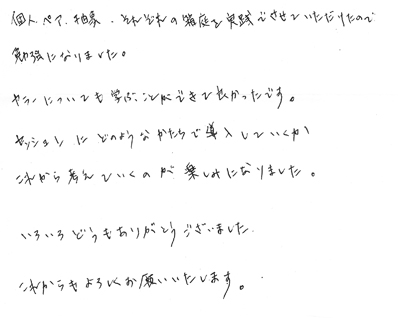 個人、ペア、相互、それぞれの箱庭を実践でさせていただけたので
勉強になりました。
ヤラについても学ぶことができて良かったです。
セッションにどのようなかたちで導入していくか
これから考えていくのが楽しみになりました。
いろいろどうもありがとうございました。
これからもよろしくお願いいたします。